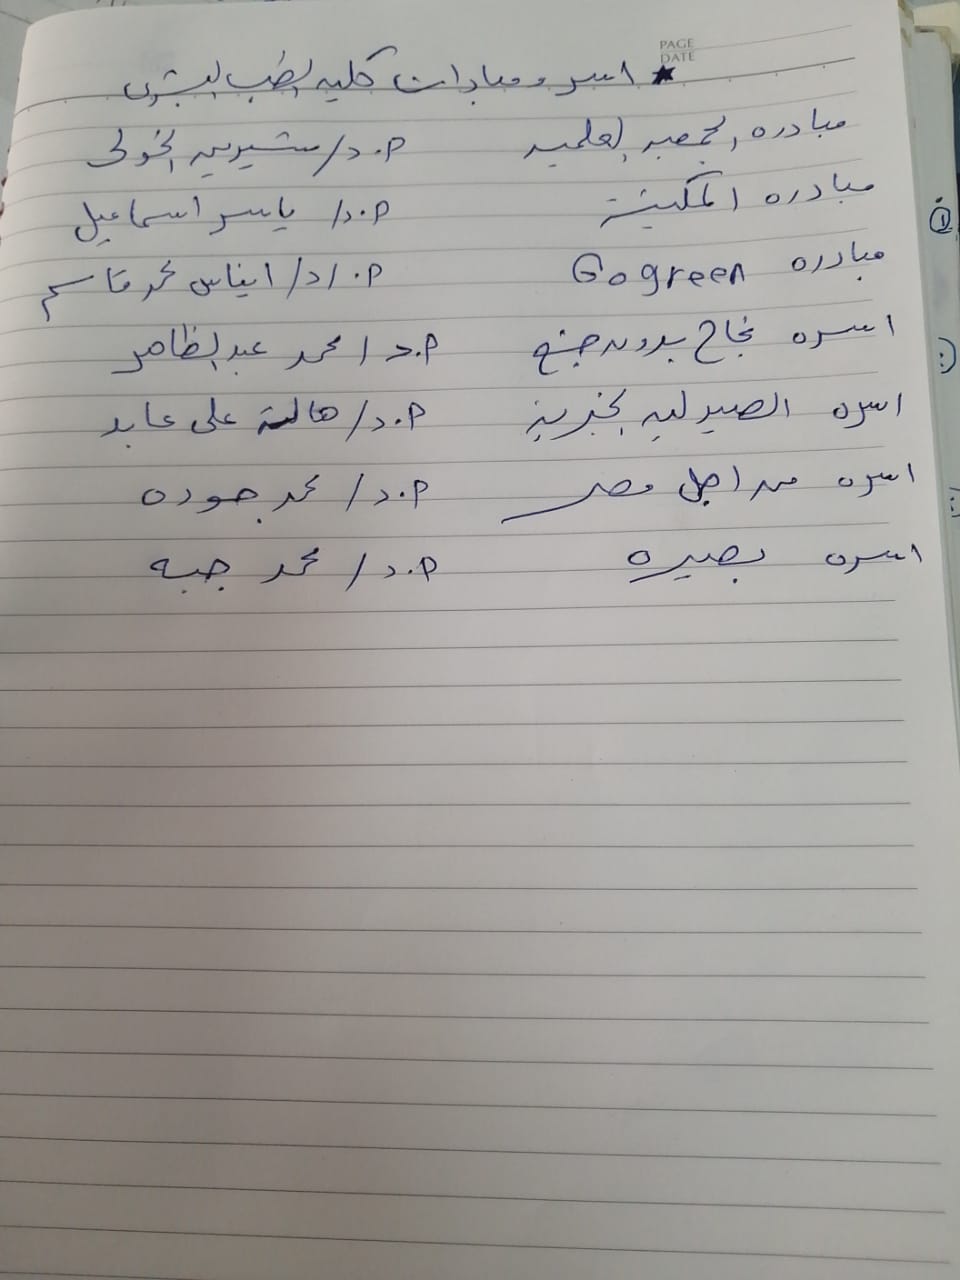 PAGE
DATE
★ اسر ومبادرات كليه الطب البشرى
مبادره الجمعيه العلميه م.د/ شيرين الخولى
مبادره م.د/ ياسر اسماعيل
مبادره Gogreen م.ا.د/ ايناس محمد قاسم
اسره نجاح بدون م.د/ محمد عبد الظاهر
اسره الصيدليه الخيريه م.د/ هالة على عابد
اسره من اجل مصر م.د/ محمد جوده
اسره بصيره م.د/ محمد جبه